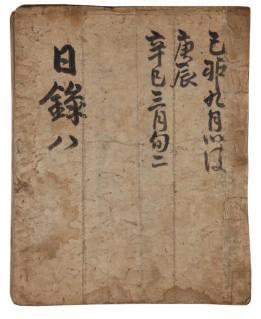 己卯九月以後
庚辰
辛巳三月旬二
日錄八